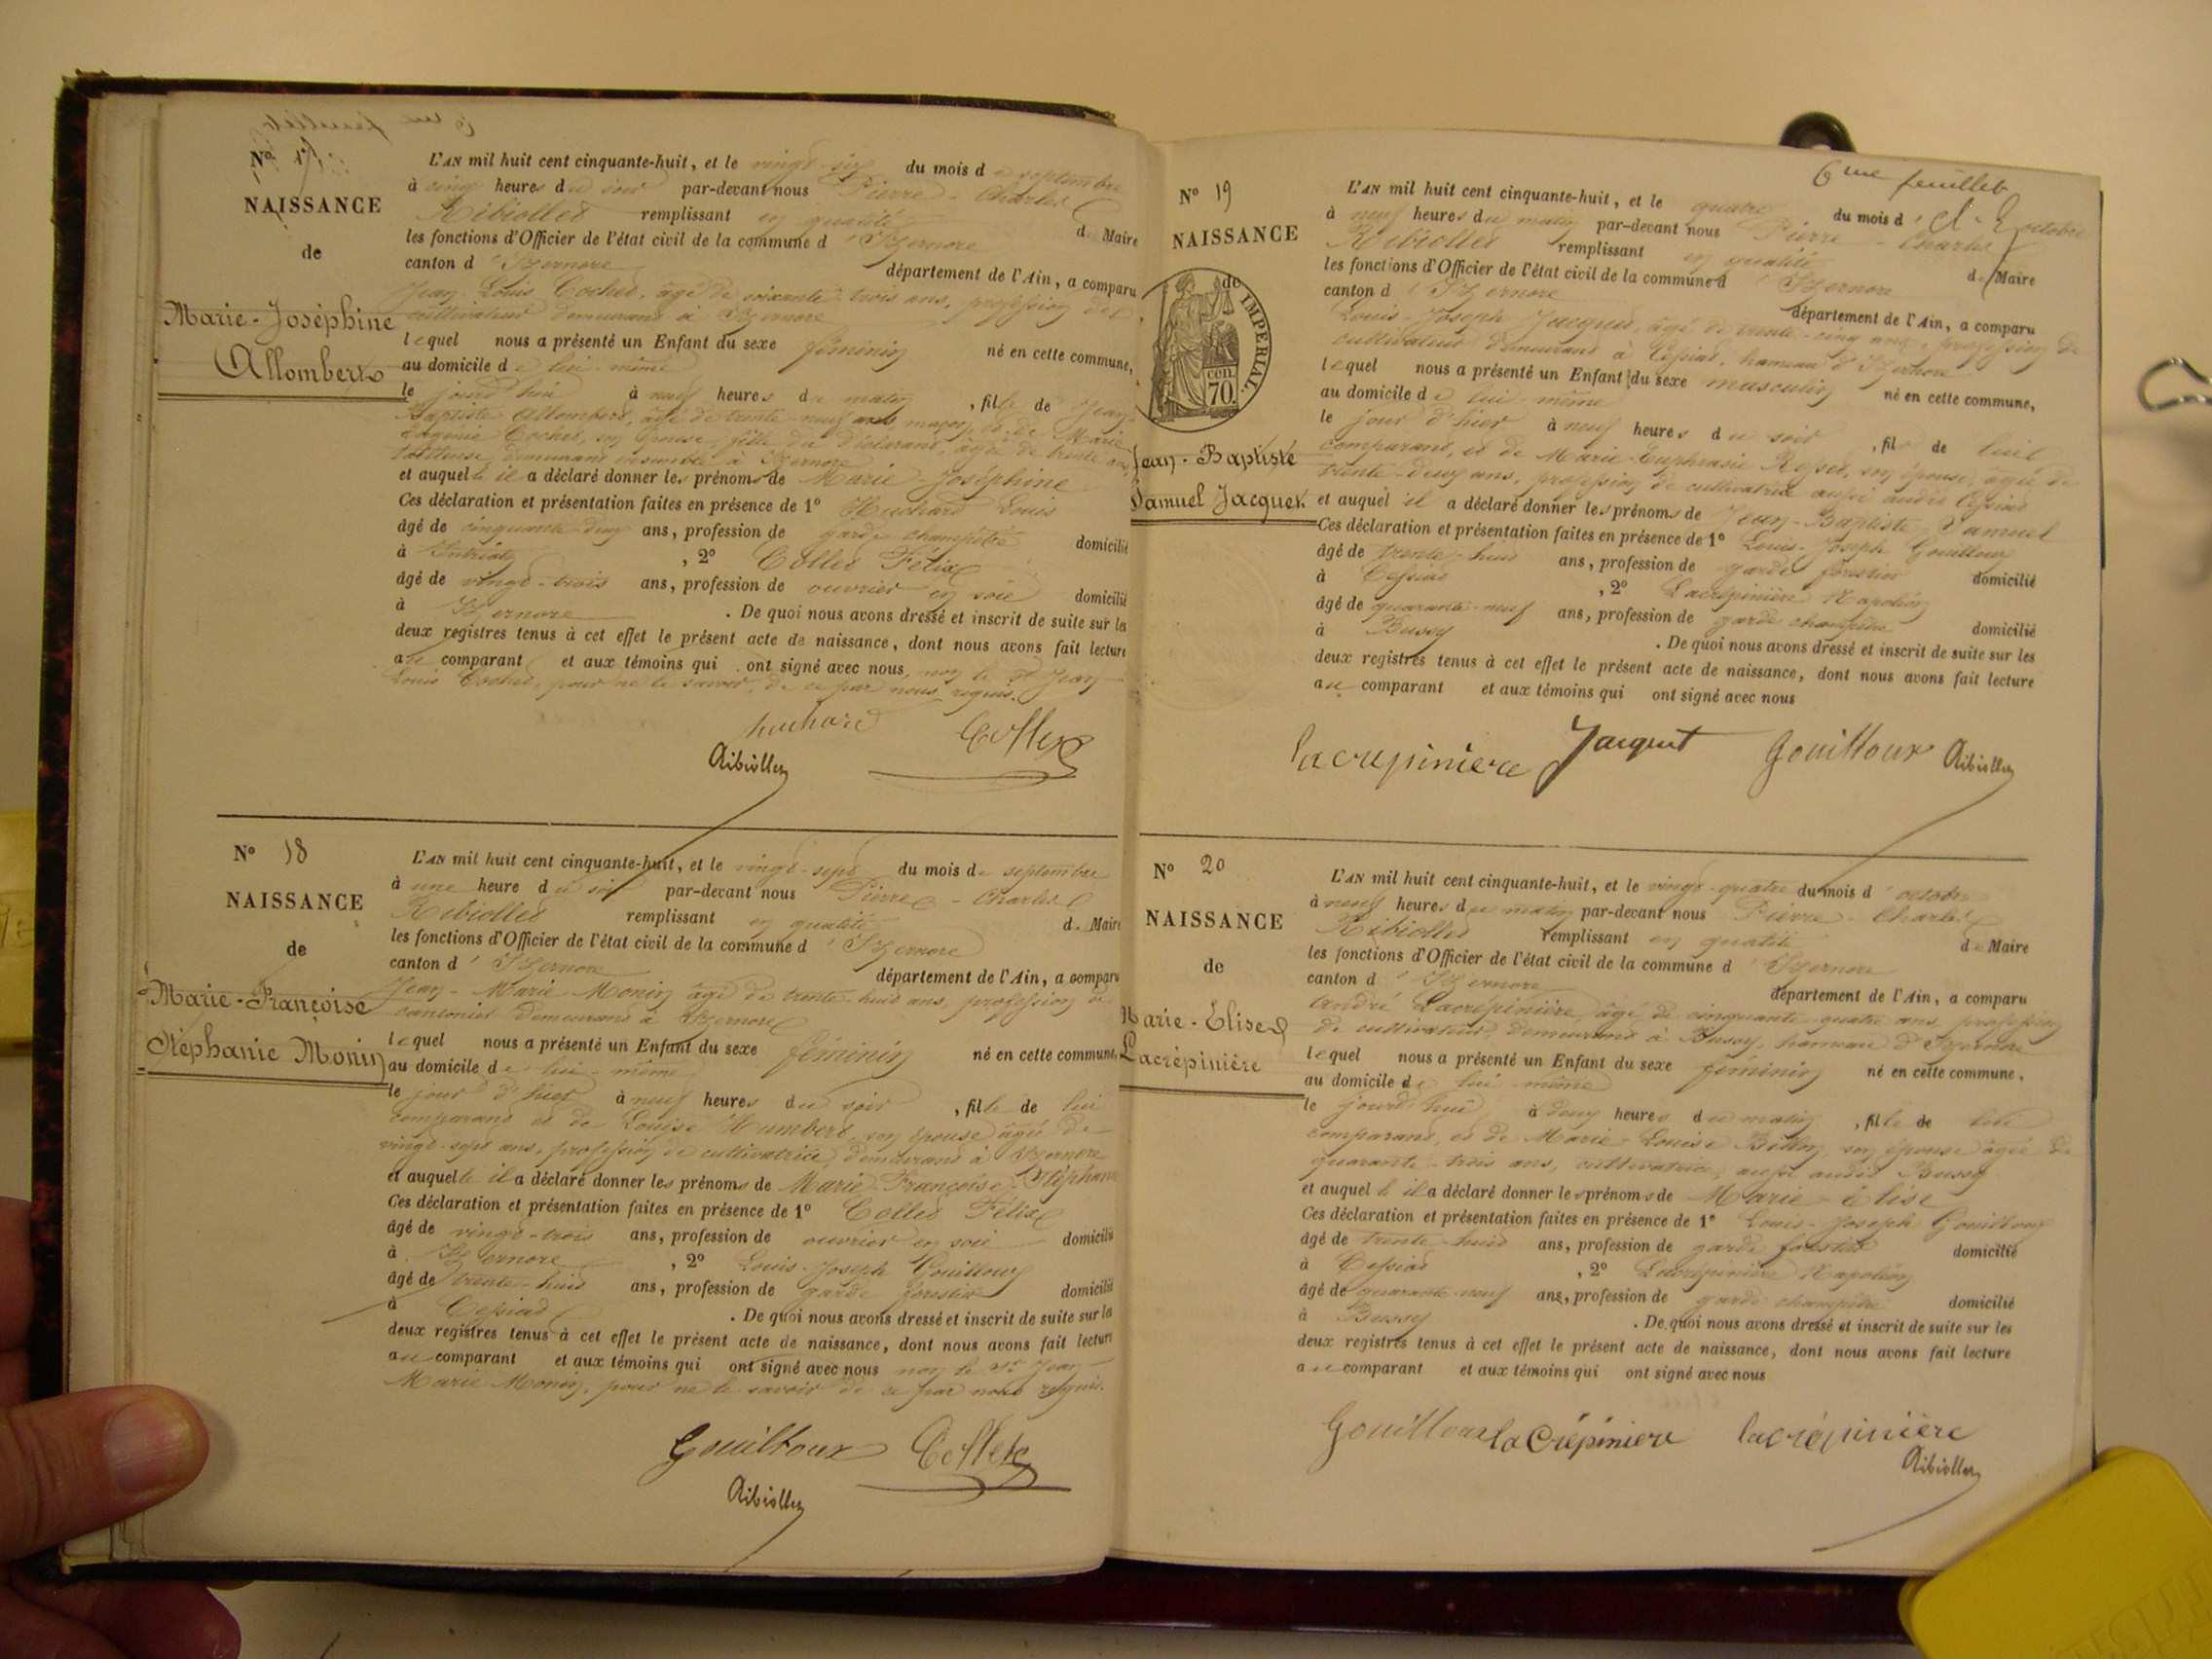 Nº 17
NAISSANCE
de
Marie-Joséphine
Allombert
L'AN mil huit cent cinquante-huit, et le vingt-six du mois de septembre
à cinq heures du soir par-devant nous Pierre-Charles
Ribiollet remplissant en qualité de Maire
les fonctions d'Officier de l'état civil de la commune d'Izernore
canton d'Izernore département de l'Ain, a comparu
Jean-Louis Cochet, âgé de soixante-trois ans, profession de
cultivateur demeurant à Izernore
lequel nous a présenté un Enfant du sexe féminin né en cette commune,
au domicile de lui-même
le jourd'hui à neuf heures du matin, fille de Jean
Baptiste Allombert, âgé de trente-neuf ans maçon et de Marie
Eugénie Cochet, son épouse, fille du déclarant, âgée de trente ans
demeurant ensemble à Izernore
et auquelle il a déclaré donner les prénoms de Marie-Joséphine
Ces déclaration et présentation faites en présence de 1º Huchard Louis
âgé de cinquante-deux ans, profession de garde champêtre domicilié
à Intriat, 2º Collet Félix
âgé de vingt-trois ans, profession de ouvrier en soie domicilié
à Izernore. De quoi nous avons dressé et inscrit de suite sur les
deux registres tenus à cet effet le présent acte de naissance, dont nous avons fait lecture
au comparant et aux témoins qui ont signé avec nous, non le Sr Jean
Louis Cochet, pour ne le savoir, de ce par nous requis.
huchard Collet
Ribiollet
Nº 18
NAISSANCE
de
Marie-Françoise
Stéphanie Monin
L'AN mil huit cent cinquante-huit, et le vingt-sept du mois de septembre
à une heure du soir par-devant nous Pierre-Charles
Ribiollet remplissant en qualité de Maire
les fonctions d'Officier de l'état civil de la commune d'Izernore
canton d'Izernore département de l'Ain, a comparu
Jean-Marie Monin âgé de trente-huit ans, profession de
cantonier demeurant à Izernore
lequel nous a présenté un Enfant du sexe féminin né en cette commune,
au domicile de lui-même
le jour d'hier à neuf heures du soir, fille de lui
comparant et de Louise Humbert son épouse âgée de
vingt-sept ans, profession de cultivatrice, demeurant à Izernore
et auquelle il a déclaré donner les prénoms de Marie-Françoise-Stéphanie
Ces déclaration et présentation faites en présence de 1º Collet Félix
âgé de vingt-trois ans, profession de ouvrier en soie domicilié
à Izernore, 2º Louis-Joseph Gouilloux
âgé de trente-huit ans, profession de garde forestier domicilié
à Cessiat. De quoi nous avons dressé et inscrit de suite sur les
deux registres tenus à cet effet le présent acte de naissance, dont nous avons fait lecture
au comparant et aux témoins qui ont signé avec nous non le Sr Jean
Marie Monin, pour ne le savoir de ce par nous requis.
Gouilloux Collet
Ribiollet
6me feuillet
Nº 19
NAISSANCE
de
IMPERIAL.
cen.
70.
Jean-Baptiste
Samuel Jacquet
L'AN mil huit cent cinquante-huit, et le quatre du mois d'octobre
à neuf heures du matin par-devant nous Pierre-Charles
Ribiollet remplissant en qualité de Maire
les fonctions d'Officier de l'état civil de la commune d'Izernore
canton d'Izernore département de l'Ain, a comparu
Louis-Joseph Jacquet, âgé de trente-cinq ans, profession de
cultivateur demeurant à Cessiat, hameau d'Izernore
lequel nous a présenté un Enfant du sexe masculin né en cette commune,
au domicile de lui-même
le jour d'hier à neuf heures du soir, fils de lui
comparant, et de Marie-Euphrasie son épouse, âgée de
trente-deux ans, profession de cultivatrice aussi audit Cessiat
et auquel il a déclaré donner les prénoms de Jean-Baptiste-Samuel
Ces déclaration et présentation faites en présence de 1º Louis-Joseph Gouilloux
âgé de trente-huit ans, profession de garde forestier domicilié
à Cessiat, 2º Lacrépinière Napoléon
âgé de quarante-neuf ans, profession de garde champêtre domicilié
à Bussy. De quoi nous avons dressé et inscrit de suite sur les
deux registres tenus à cet effet le présent acte de naissance, dont nous avons fait lecture
au comparant et aux témoins qui ont signé avec nous
lacrepinière Jacquet Gouilloux Ribiollet
Nº 20
NAISSANCE
de
Marie-Elise
Lacrépinière
L'AN mil huit cent cinquante-huit, et le vingt-quatre du mois d'octobre
à neuf heures du matin par-devant nous Pierre-Charles
Ribiollet remplissant en qualité de Maire
les fonctions d'Officier de l'état civil de la commune d'Izernore
canton d'Izernore département de l'Ain, a comparu
André Lacrépinière, âgé de cinquante-quatre ans, profession
de cultivateur, demeurant à Bussy, hameau d'Izernore
lequel nous a présenté un Enfant du sexe féminin né en cette commune,
au domicile de lui-même
le jourd'hui à deux heures du matin, fille de lui
comparant, et de Marie-Louise son épouse âgée de
quarante-trois ans, cultivatrice, aussi audit Bussy
et auquelle il a déclaré donner les prénoms de Marie-Elise
Ces déclaration et présentation faites en présence de 1º Louis-Joseph Gouilloux
âgé de trente-huit ans, profession de garde forestier domicilié
à Cessiat, 2º Lacrépinière Napoléon
âgé de quarante-neuf ans, profession de garde champêtre domicilié
à Bussy. De quoi nous avons dressé et inscrit de suite sur les
deux registres tenus à cet effet le présent acte de naissance, dont nous avons fait lecture
au comparant et aux témoins qui ont signé avec nous
Gouilloux la Crépiniere lacrépinière
Ribiollet